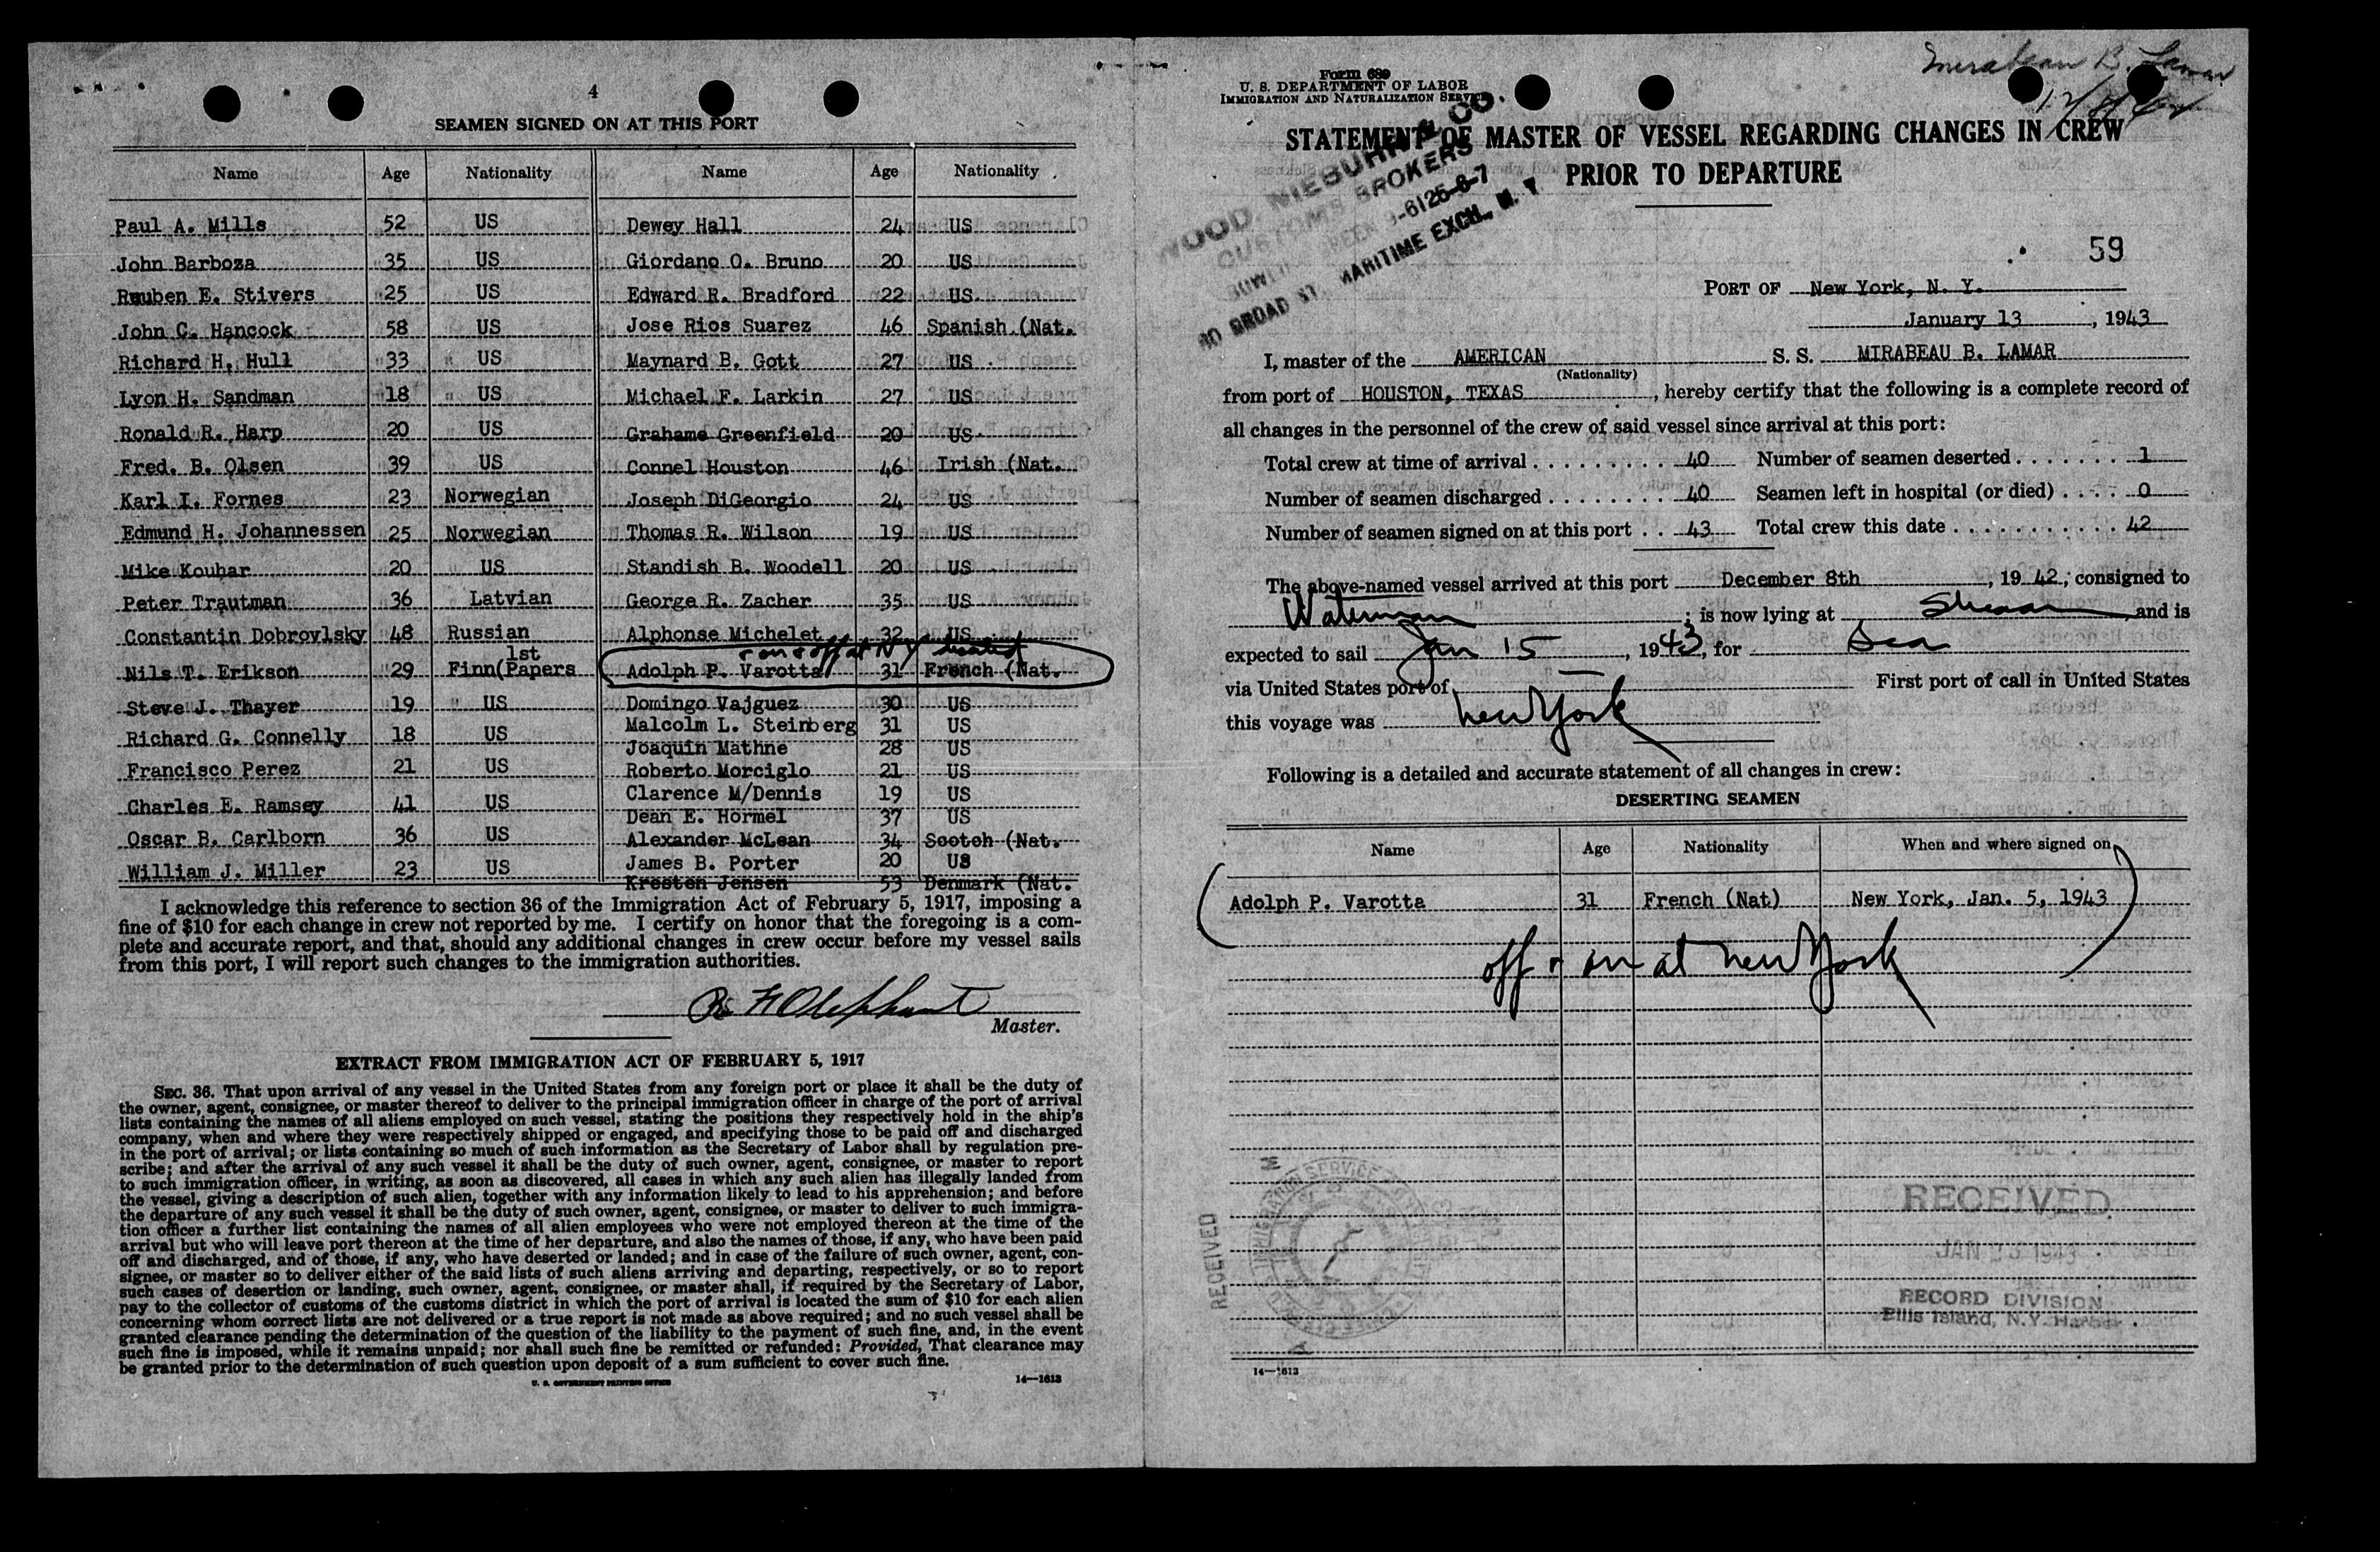 4
SEAMEN SIGNED ON AT THIS PORT
Name Age Nationality Name Age Nationality
Paul A. Mills 52 US Dewey Hall 24 US
John Barboza 35 US Giordano O. Bruno 20 US
Reuben E. Stivers 25 US Edward R. Bradford 22 US
John C. Hancock 58 US Jose Rios Suarez 46 Spanish (Nat.
Richard H. Hull 33 US Maynard B. Gott 27 US
Lyon H. Sandman 18 US Michael F. Larkin 27 US
Ronald R. Harp 20 US Grahame Greenfield 20 US
Fred. B. Olsen 39 US Connel Houston 46 Irish (Nat.
Karl I. Fornes 23 Norwegian Joseph DiGeorgio 24 US
Edmund H. Johannessen 25 Norwegian Thomas R. Wilson 19 US
Mike Kouhar 20 US Standish B. Woodell 20 US
Peter Trautman 36 Latvian George R. Zacher 35 US
Constantin Dobrovlsky 48 Russian Alphonse Michelet 32 US
on & off at NY
Nils T. Erikson 29 Finn(1st Papers Adolph P. Varotta 31 French (Nat.
Steve J. Thayer 19 US Domingo Vajguez 30 US
Malcolm L. Steinberg 31 US
Richard G. Connelly 18 US Joaquin Mathne 28 US
Francisco Perez 21 US Roberto Morciglo 21 US
Clarence M/Dennis 19 US
Charles E. Ramsey 41 US Dean E. Hormel 37 US
Oscar B. Carlborn 36 US Alexander McLean 34 Scotch (Nat.
James B. Porter 20 US
William J. Miller 23 US Kresten Jensen 53 Denmark (Nat.
I acknowledge this reference to section 36 of the Immigration Act of February 5, 1917, imposing a
fine of $10 for each change in crew not reported by me. I certify on honor that the foregoing is a com-
plete and accurate report, and that, should any additional changes in crew occur before my vessel sails
from this port, I will report such changes to the immigration authorities.
Master.
EXTRACT FROM IMMIGRATION ACT OF FEBRUARY 5, 1917
SEC. 36. That upon arrival of any vessel in the United States from any foreign port or place it shall be the duty of
the owner, agent, consignee, or master thereof to deliver to the principal immigration officer in charge of the port of arrival
lists containing the names of all aliens employed on such vessel, stating the positions they respectively hold in the ship's
company, when and where they were respectively shipped or engaged, and specifying those to be paid off and discharged
in the port of arrival; or lists containing so much of such information as the Secretary of Labor shall by regulation pre-
scribe; and after the arrival of any such vessel it shall be the duty of such owner, agent, consignee, or master to report
to such immigration officer, in writing, as soon as discovered, all cases in which any such alien has illegally landed from
the vessel, giving a description of such alien, together with any information likely to lead to his apprehension; and before
the departure of any such vessel it shall be the duty of such owner, agent, consignee, or master to deliver to such immigra-
tion officer a further list containing the names of all alien employees who were not employed thereon at the time of the
arrival but who will leave port thereon at the time of her departure, and also the names of those, if any, who have been paid
off and discharged, and of those, if any, who have deserted or landed; and in case of the failure of such owner, agent, con-
signee, or master so to deliver either of the said lists of such aliens arriving and departing, respectively, or so to report
such cases of desertion or landing, such owner, agent, consignee, or master shall, if required by the Secretary of Labor,
pay to the collector of customs of the customs district in which the port of arrival is located the sum of $10 for each alien
concerning whom correct lists are not delivered or a true report is not made as above required; and no such vessel shall be
granted clearance pending the determination of the question of the liability to the payment of such fine, and, in the event
such fine is imposed, while it remains unpaid; nor shall such fine be remitted or refunded: Provided, That clearance may
be granted prior to the determination of such question upon deposit of a sum sufficient to cover such fine.
U. S. GOVERNMENT PRINTING OFFICE 14—1613
Mirabeau B. Lamar
Form 689
U. S. DEPARTMENT OF LABOR
IMMIGRATION AND NATURALIZATION SERVICE
STATEMENT OF MASTER OF VESSEL REGARDING CHANGES IN CREW
PRIOR TO DEPARTURE
WOOD, NIEBUHR & CO.
CUSTOMS BROKERS
BROAD ST. MARITIME EXCH., N. Y.
59
PORT OF New York, N. Y.
January 13, 1943
I, master of the AMERICAN S. S. MIRABEAU B. LAMAR
(Nationality)
from port of HOUSTON, TEXAS, hereby certify that the following is a complete record of
all changes in the personnel of the crew of said vessel since arrival at this port:
Total crew at time of arrival 40 Number of seamen deserted 1
Number of seamen discharged 40 Seamen left in hospital (or died) 0
Number of seamen signed on at this port 43 Total crew this date 42
The above-named vessel arrived at this port December 8th, 19 42, consigned to
Waterman; is now lying at and is
expected to sail Jan 15, 1943, for Sea
via United States port of First port of call in United States
this voyage was New York
Following is a detailed and accurate statement of all changes in crew:
DESERTING SEAMEN
Name Age Nationality When and where signed on
Adolph P. Varotta 31 French (Nat) New York, Jan. 5, 1943
off & on at New York
RECEIVED
RECEIVED
JAN 1943
RECORD DIVISION
Ellis Island, N.Y. Harbor
14—1613